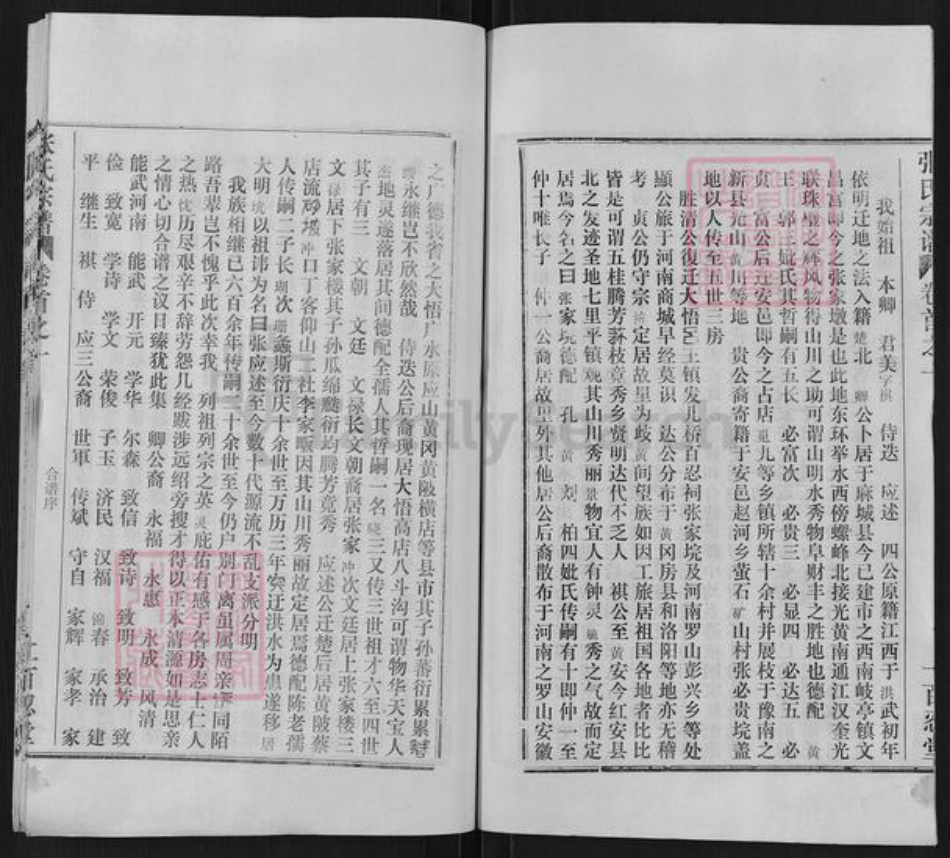 张氏宗谱 卷首之一 百忍堂
我始祖 本卿 君美字祺 侍迭 应述 四公原籍江西于洪武初年
依明迁地之法入籍楚北 卿公卜居于麻城县今已建市之西南岐亭镇文
昌宫即今之张家墩是也此地东环举水西傍螺峰北接光黄南通江汉奎光
联珠璧之辉风物得山川之助可谓山明水秀物阜财丰之胜地也德配 黄
王 郭三妣氏其哲嗣有五长 必富次 必贵三 必显四 必达五 必
贞 富公后迁安邑即今之占店觅儿等乡镇所辖十余村并展枝于豫南之
新县光山黄川等地 贵公裔寄籍于安邑赵河乡萤石矿山村张必贵垸盖
地以人传至五世三房
胜清公復迁大悟 王镇发儿桥百忍祠张家垸及河南罗山彭兴乡等处
顯公旅于河南商城早经莫识 达公分布于黄冈房县和洛阳等地亦无稽
考 贞公仍守宗 定居故里为歧黄间望族如因工旅居祖国各地者比比
皆是可谓五桂腾芳荪枝竟秀乡贤明达代不乏人 祺公至黄安今红安县
北之发迹圣地七里平镇观其山川秀丽景物宜人有钟灵毓秀之气故而定
居焉今名之曰张家垸德配 孔 黄 刘 柏四妣氏传嗣有十即仲一至
仲十唯长子 仲一公裔居故里外其他居公后裔散布于河南之罗山安徽
之广德我省之大悟广水原应山黄冈黄陂横店等县市其子孙蕃衍累累
永继岂不欣然哉 侍迭公后裔现居大悟高店八斗沟可谓物华天宝人
杰地灵遂落居其间德配全儒人其哲嗣一名 三又传三世祖才六至四世
其子有三 文朝 文廷 文禄长文朝裔居张家冲次文廷居上张家楼三
文禄居下张家楼其子孙瓜绵 衍均腾芳竟秀 应述公迁楚后居黄陂蔡
店流 塆冲口丁客仰山二社李家畈因其山川秀丽故定居焉德配陈老儒
人传嗣二子长 次 螽斯衍庆十余世至万历三年突迂洪水为患遂移居
大明坑以祖讳为名曰张应述至今数十代源流不乱支派分明
我族相继已六百余年传嗣二十余世至今仍户别门离虽属周亲 同陌
路吾辈岂不愧乎此次幸我 列祖列宗之英灵庇佑有感于各房志士仁人
之热忱历尽艰辛不辞劳怨几经跋涉远绍旁搜才得以正本清源如是思亲
之情心切合谱之议日臻犹此集 卿公裔 永福 永惠 永成 风清
能武河南 能武 开元 学华 尔森 致信 致诗 致明 致芳 致
俭 致宽 学诗 学文 荣俊 子玉 济民 汉福 锦春 承治 建
平 继生 祺 侍 应三公裔 世军 传斌 守自 家辉 家孝 家
张氏宗谱 卷首之一 合谱序 百忍堂